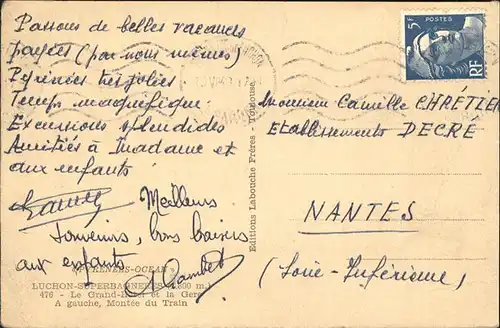 Passons de belles vacances
payées (par nous mêmes)
Pyrénées très jolies
Temps magnifique
Excursions splendides
Amitiés à Madame et
aux enfants
Meilleurs
souvenirs, bons baisers
aux enfants
"PYRÉNÉES-OCÉAN"
LUCHON-SUPERBAGNÈRES (1.800 m.)
476 - Le Grand-Hôtel et la Gare
A gauche, Montée du Train
Editions Labouche Frères - Toulouse
5F
POSTES
RF
Monsieur Camille CHRÉTIEN
Etablissements DECRÉ
NANTES
(Loire-Inférieure)